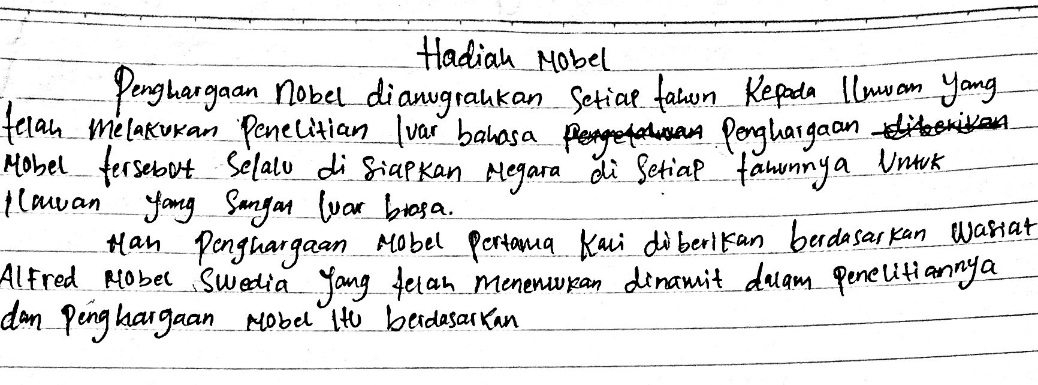 Hadiah Nobel
Penghargaan Nobel dianugrahkan Setiap tahun Kepada Ilmuan Yang
telah Melakukan Penelitian luar bahasa Pengetahuan Penghargaan diberikan
Nobel tersebut Selalu di Siapkan Negara di Setiap tahunnya Untuk
Ilmuan yang Sangat luar biasa.
Nah Penghargaan Nobel Pertama Kali diberikan berdasarkan Wasiat
Alfred Nobel Swedia Yang telah Menemukan dinamit dalam Penelitiannya
dan Penghargaan Nobel Itu berdasarkan